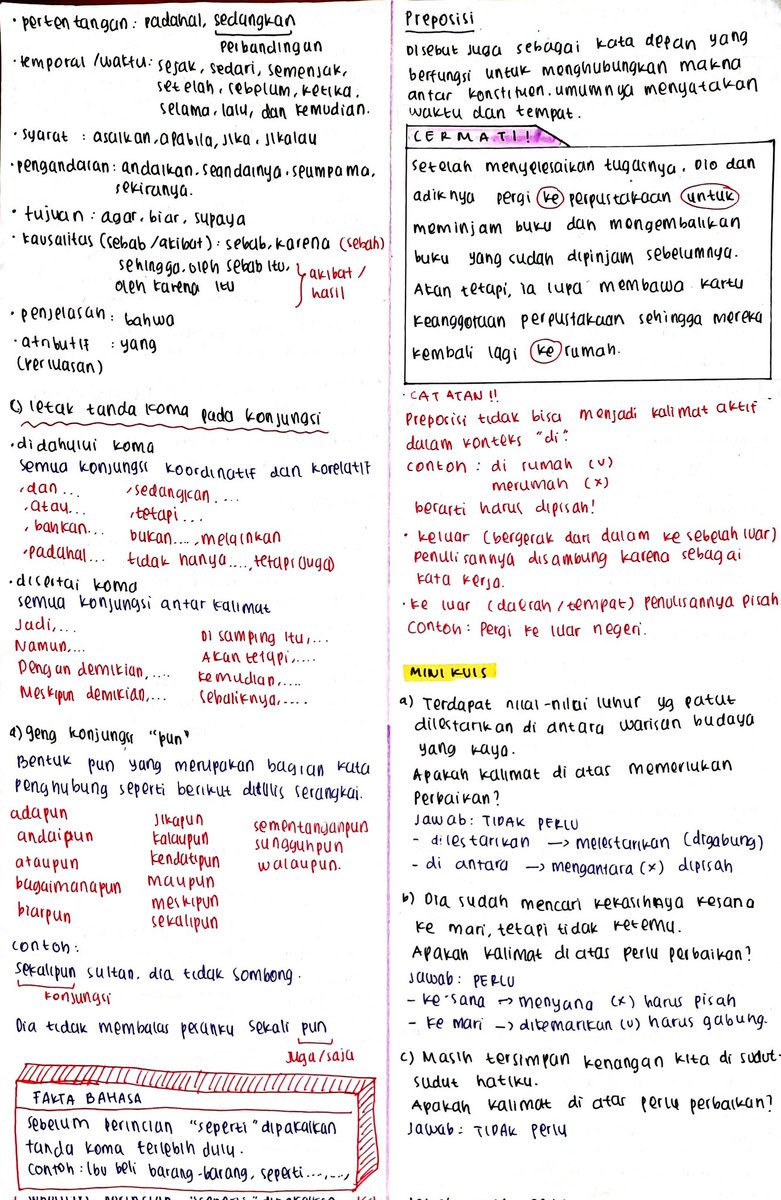 • pertentangan : padahal, sedangkan
perbandingan
• temporal /waktu : sejak, sedari, semenjak,
setelah, sebelum, ketika,
selama, lalu, dan kemudian.
• syarat : asalkan, apabila, jika, jikalau
• pengandaian : andaikan, seandainya, seumpama,
sekiranya.
• tujuan : agar, biar, supaya
• kausalitas (sebab /akibat) : sebab, karena (sebab)
sehingga, oleh sebab itu,
oleh karena itu
akibat /
hasil
• penjelasan : bahwa
• atributif : yang
(perluasan)
c) letak tanda koma pada konjungsi
• didahului koma
semua konjungsi koordinatif dan korelatif
, dan ... , sedangkan ....
, atau ... , tetapi ...
, bahkan ... bukan ...., melainkan
, padahal ... tidak hanya ...., tetapi (juga)
• disertai koma
semua konjungsi antar kalimat
Jadi, ...
Namun, ...
Dengan demikian, ....
Meskipun demikian, ...
Di samping itu, ...
Akan tetapi, ....
Kemudian, ....
Sebaliknya, .....
d) geng konjungsi "pun"
Bentuk pun yang merupakan bagian kata
penghubung seperti berikut ditulis serangkai.
adapun
andaipun
ataupun
bagaimanapun
biarpun
jikapun
kalaupun
kendatipun
maupun
meskipun
sekalipun
sementangpun
sungguhpun
walaupun.
contoh :
sekalipun sultan, dia tidak sombong.
konjungsi
Dia tidak membalas pesanku sekali pun
juga/saja
FAKTA BAHASA
sebelum perincian "seperti" dipakaikan
tanda koma terlebih dulu.
contoh : Ibu beli barang-barang, seperti ...,...,
Preposisi
Disebut juga sebagai kata depan yang
berfungsi untuk menghubungkan makna
antar konstituen. umumnya menyatakan
waktu dan tempat.
CERMATI!
Setelah menyelesaikan tugasnya, Dio dan
adiknya pergi ke perpustakaan untuk
meminjam buku dan mengembalikan
buku yang sudah dipinjam sebelumnya.
Akan tetapi, ia lupa membawa kartu
keanggotaan perpustakaan sehingga mereka
kembali lagi ke rumah.
• CATATAN !!
Preposisi tidak bisa menjadi kalimat aktif
dalam konteks "di".
contoh : di rumah (v)
merumah (x)
berarti harus dipisah!
• keluar (bergerak dari dalam ke sebelah luar)
penulisannya disambung karena sebagai
kata kerja.
• ke luar (daerah /tempat) penulisannya pisah
contoh : Pergi ke luar negeri.
MINI KUIS
a) Terdapat nilai-nilai luhur yg patut
dilestarikan di antara warisan budaya
yang kaya.
Apakah kalimat di atas memerlukan
perbaikan?
Jawab : TIDAK PERLU
- dilestarikan → melestarikan (digabung)
- di antara → mengantara (x) dipisah
b) Dia sudah mencari kekasihnya kesana
ke mari, tetapi tidak ketemu.
Apakah kalimat di atas perlu perbaikan?
Jawab : PERLU
- ke sana → menyana (x) harus pisah
- ke mari → dikemarikan (v) harus gabung.
c) Masih tersimpan kenangan kita di sudut-
sudut hatiku.
Apakah kalimat di atas perlu perbaikan?
Jawab : TIDAK PERLU